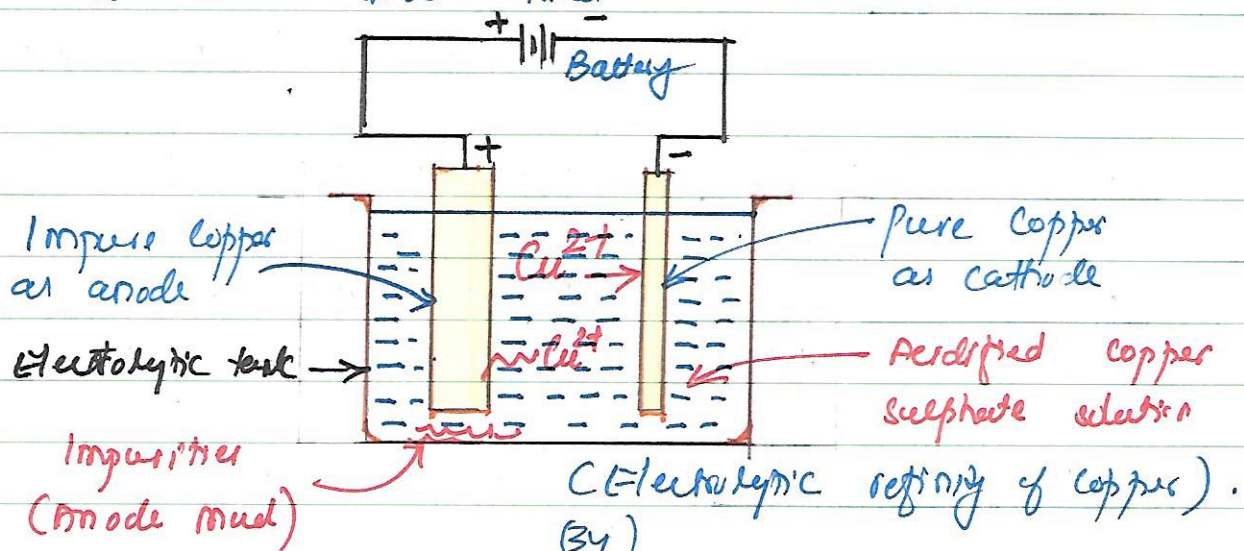 + -
Battery
+ -
Impure Copper
as anode
Cu2+
Pure Copper
as cathode
Electrolytic tank
Cu2+
Acidified copper
sulphate solution
Impurities
(Anode mud)
(Electrolytic refining of copper).
(34)